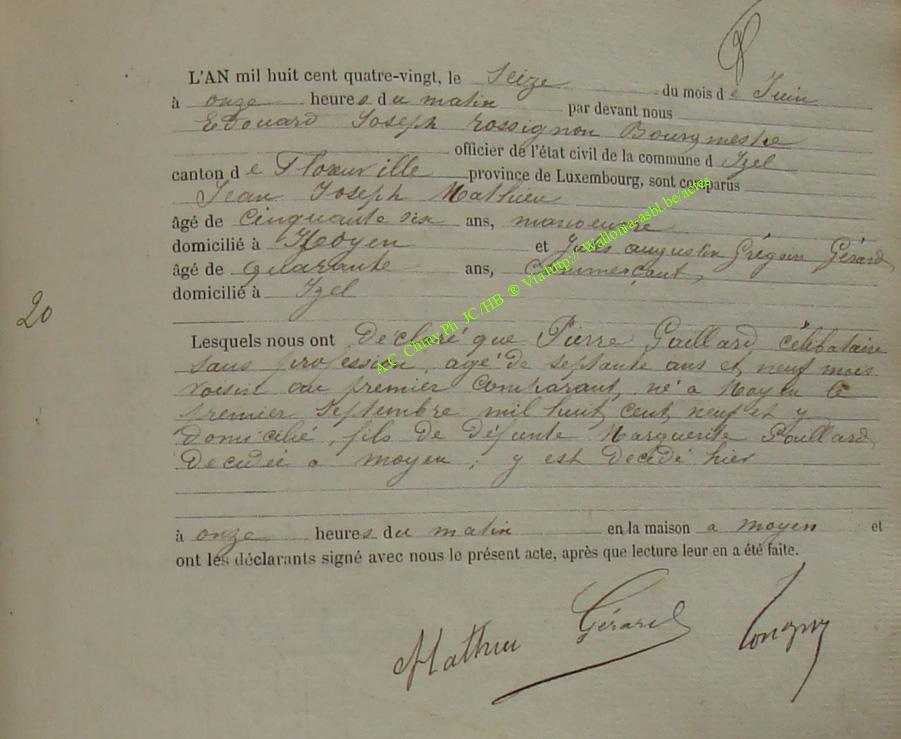 L'AN mil huit cent quatre-vingt, le Seize du mois de Juin
à onze heures du matin par devant nous
Edouard Joseph Rossignon Bourgmestre
officier de l'état civil de la commune d Izel
canton de Florenville province de Luxembourg, sont comparus
Jean Joseph Mathieu
âgé de cinquante six ans, manoeuvre
domicilié à Moyen et Jules augustin Grégoire Gérard
âgé de quarante ans, Commerçant,
domicilié à Izel
20
Lesquels nous ont Déclaré que Pierre Gaillard célibataire
sans profession, agé de septante ans et neuf mois
voisin du premier comparant, né a Moyen le
premier septembre mil huit cent neuf et y
domicilié, fils de défunte Marguerite Gaillard
décédée a moyen, y est décédé hier
à onze heures du matin en la maison a moyen et
ont les déclarants signé avec nous le présent acte, après que lecture leur en a été faite.
Mathieu Gérard
A.C. Chiny Ph JC/HB ® Via http://Wallonia-asbl.be/actes